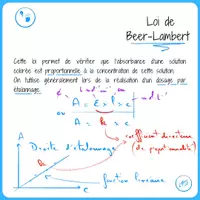 Loi de
Beer-Lambert
Cette loi permet de vérifier que l'absorbance d'une solution
colorée est proportionnelle à la concentration de cette solution.
On l'utilise généralement lors de la réalisation d'un dosage par
étalonnage.
A = ε × l × c
ou
A = k × c
A
Droite d'étalonnage
coefficient directeur
fonction linéaire
c